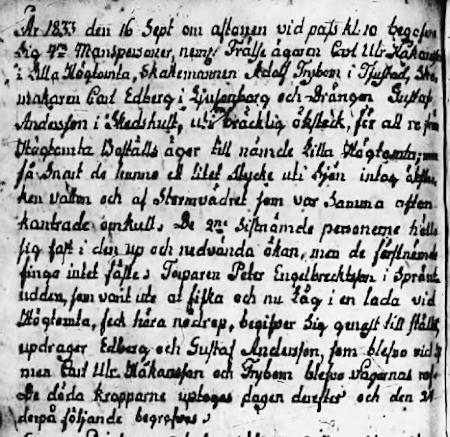 År 1833 den 16 Sept om aftonen vid pass kl. 10 begofvo
sig 4ra Manspersoner, neml. Frälse ägaren Carl Ulr. Håkansson
i Lilla Högtomta, Skattemannen Adolf Trybom i Tjustad, Sko-
makaren Carl Edberg i Ljusenborg och Drängen Gustaf
Andersson i Skedshult, uti bräcklig ökstock, för att ro från
Högtomta Boställs ägor till nämde Lilla Högtomta; men
så snart de hunno ett litet stycke uti Sjön intog ökstoc-
ken vatten och af Stormvädret som var samma afton
kantrade omkull. De 2ne sistnämde personerne höllo
sig fast i den up och nedvända ökan, men de förstnämde
fingo intet fäste. Torparen Peter Engelbrechtsson i Sprönt
udden, som varit ute at fiska och nu låg i en lada vid
Högtomta, feck höra nödrop, begifver sig genast till stället,
updrager Edberg och Gustaf Andersson, som blefvo vid
men Carl Ulr. Håkansson och Trybom blefvo vågornas rof.
De döda kropparne uptogos dagen derefter och den 24
derpå följande begrofvos.